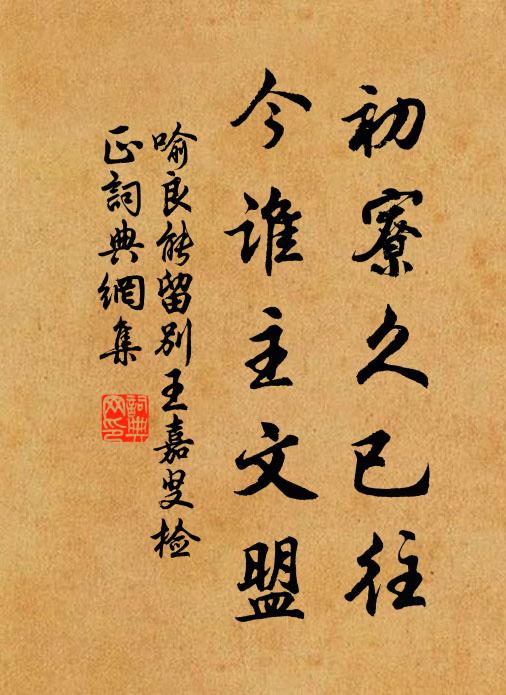 初寮久已往
今谁主文盟
喻良能留别王嘉叟检
正詞典網集
詞典
网印